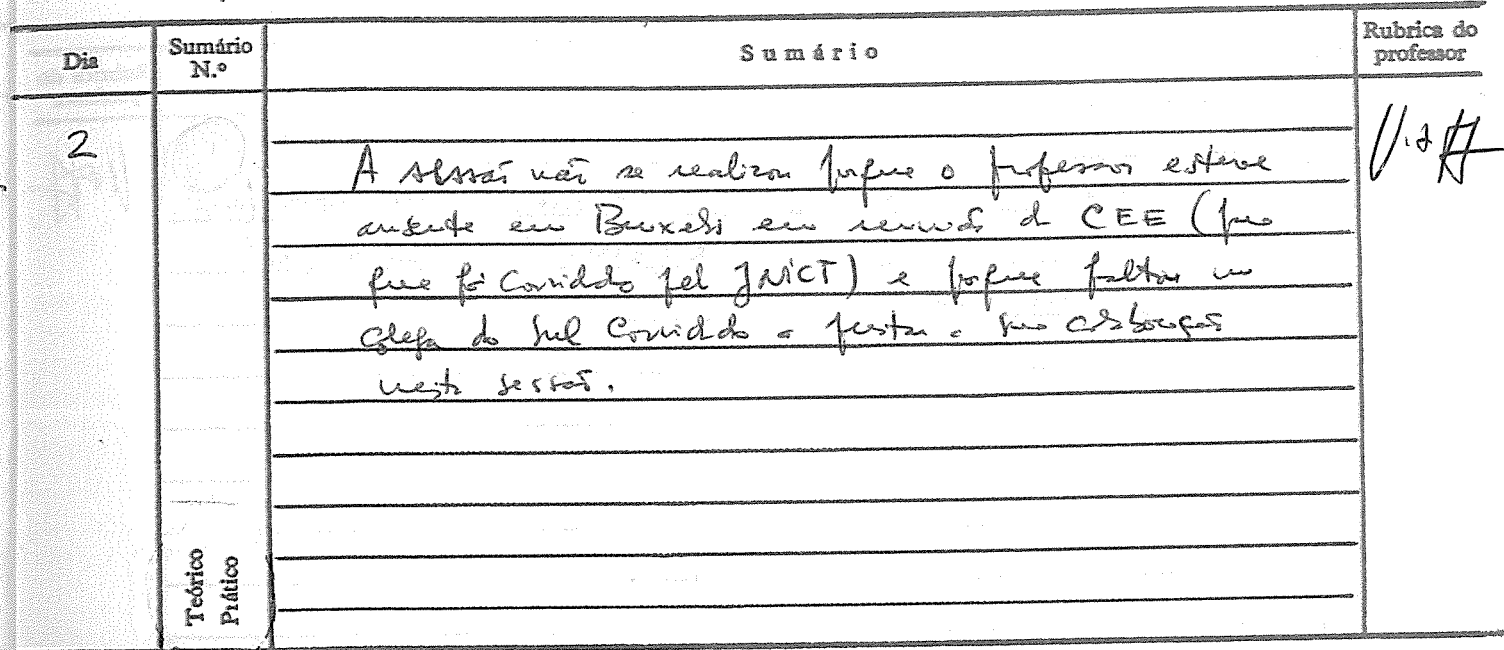 Dia
Sumário N.º
Sumário
Rubrica do professor
2
A sessão não se realizou porque o professor esteve
ausente em Bruxelas em reunião da CEE (para
que foi convidado pela JNICT) e porque faltou um
colega do Sul convidado a prestar a sua colaboração
nesta sessão.
Teórico
Prático